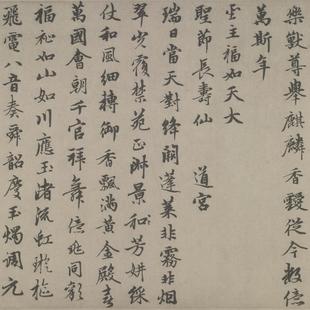 樂獻尊舉麒麟香靉從今數億
萬斯年
聖主福如天大
聖節長壽仙 道宮
瑞日當天對絳闕蓬萊非霧非烟
翠光覆禁苑正淑景和芳妍綵
仗和風細轉御香飄滿黃金殿喜
萬國會朝千官拜舞億兆同歡
福祉如山如川應玉渚流虹璇樞
飛電八音奏舜韶慶玉燭調元